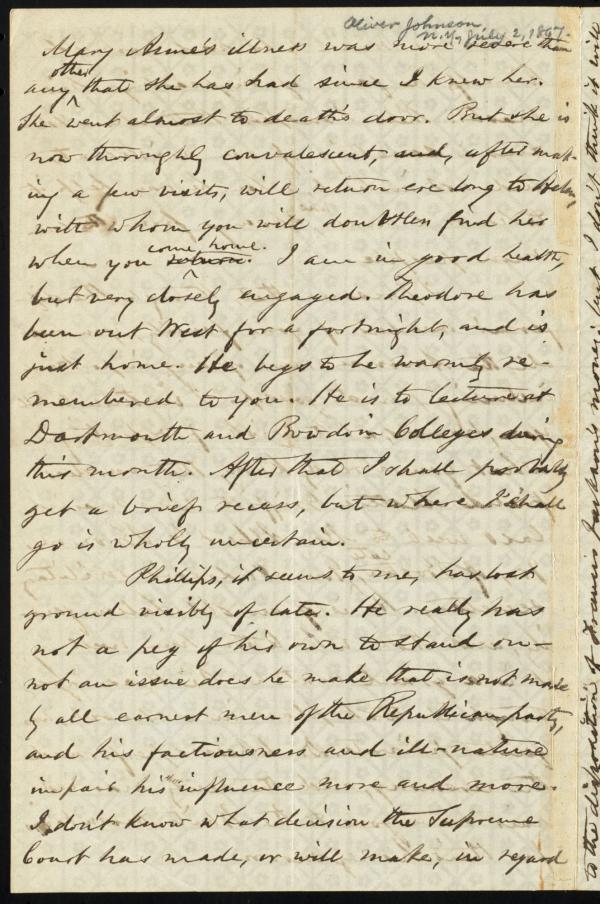 Oliver Johnson,
N.Y., July 2, 1867.
Mary Anne's illness was more severe than
any other that she has had since I knew her.
She went almost to death's door. But she is
now thoroughly convalescent, and, after mak-
ing a few visits, will return ere long to Helen,
with whom you will doubtless find her
when you return. come home. I am in good health,
but very closely engaged. Theodore has
been out West for a fortnight, and is
just home. He begs to be warmly re-
membered to you. He is to lecture at
Dartmouth and Bowdoin Colleges during
this month. After that I shall probably
get a brief recess, but where I shall
go is wholly uncertain.
Phillips, it seems to me, has lost
ground visibly of late. He really has
not a peg of his own to stand on—
not an issue does he make that is not made
by all earnest men of the Republican party,
and his factiousness and ill-nature
impair his influence more and more.
I don't know what decision the Supreme
Court has made, or will make, in regard
to the disposition of Francis Jackson's money; but I don't think it will